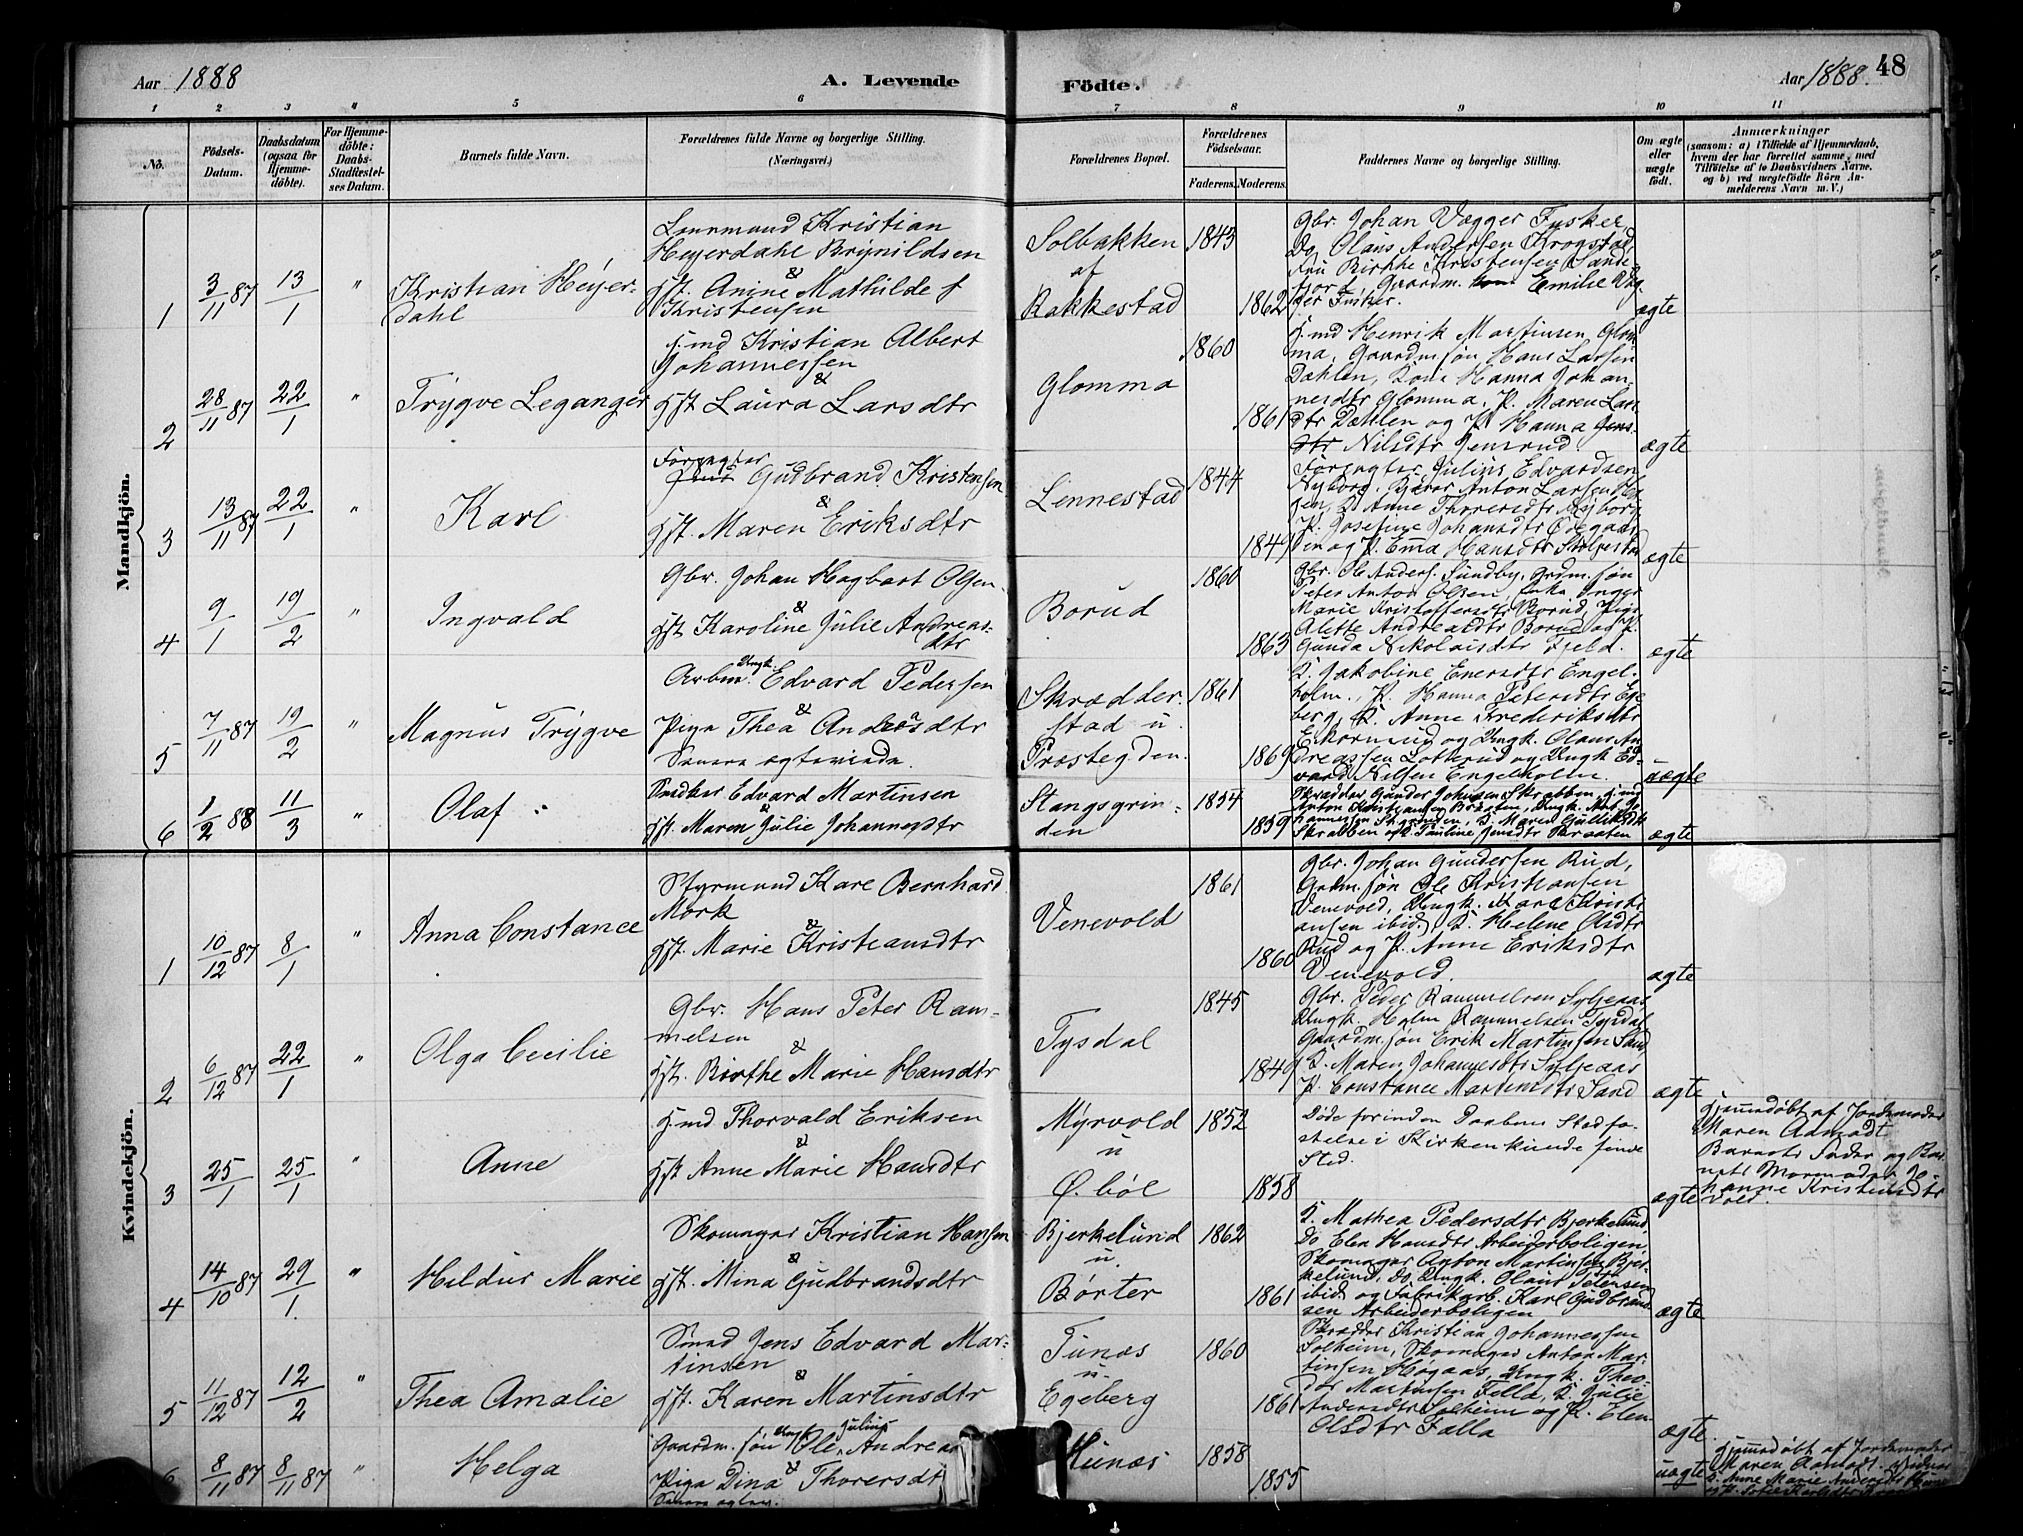 Aar 1888
A. Levende
Födte.
Aar 1888.
48
1 2 3 4 5 6 7 8 9 10 11
No.
Födsels-
Datum.
Daabsdatum
(ogsaa for
Hjemme-
döbte).
For Hjemme-
döbte:
Daabs-
Stadfæstel-
ses Datum.
Barnets fulde Navn.
Forældrenes fulde Navne og borgerlige Stilling.
(Næringsvei.)
Forældrenes Bopæl.
Forældrenes
Födselsaar.
Faderens.
Moderens.
Faddernes Navne og borgerlige Stilling.
Om ægte
eller
uægte
födt.
Anmærkninger
(saasom: a) i Tilfælde af Hjemmedaab,
hvem der har forrettet samme, med
Tilföielse af to Daabsvidners Navne,
og b) ved uægtefödte Börn An-
melderens Navn m. V.)
Mandkjön.
1
3/11 87
13/1
"
Kristian Heyer-
dahl
Kristian
Heyerdahl Brynildsen
&
Hst. Anine Mathilde f
Kristensen
Solbakken
af
Rakkestad
1843
1862
Gbr. Johan Vægger Fusker
Do Olaus Andersen Krogstad
Fru Birthe Kristensen Sande-
fjord, Gaardm. Emilie Væg
ger Fusker.
ægte
2
28/11 87
22/1
"
Trygve Leganger
H.md Kristian Albert
Johannessen
&
Hst Laura Larsdtr
Glomma
1860
1861
H.md Henrik Martinsen Glom
ma, Gaardm.søn Hans Larsen
Dahlen, Kone Hanna Johan-
nesdtr Glomma, P. Maren Lars
dtr Dahlen og P. Hanna Jens-
dtr Nilsdtr Jensrud.
ægte
3
13/11 87
22/1
"
Karl
Forpagter
Gudbrand Kristensen
&
Hst. Maren Eriksdtr
Lennestad
1844
1849
Forpagter Julius Edvardsen
Nyborg, Anton Larsen
K Anne Thoresdtr Nyborg
P. Josefine Johansdtr Ødegaar
den og P. Emma Hansdtr
ægte
4
9/1
19/2
"
Ingvald
Gbr. Johan Hagbart Olsen
&
Hst Karoline Julie Andreas-
dtr
Borud
1860
1863
Gbr. Ole Anders. Sundby, Grdm.søn
Peter Anton Olsen, Enke Inger
Marie Kristoffersdtr Borud, Pige
Alette Andreasdtr Borud og P.
Gunda Nikolaisdtr Fjeld.
ægte
5
7/11 87
19/2
"
Magnus Trygve
Ungk.
Arbm. Edvard Pedersen
&
Pige Thea Andersdtr
Skrædder-
stad u.
Præstegden.
1861
1869
K. Jakobine Enersdtr Engel-
holm, P. Hanna Petersdtr Ege
berg, K. Anne Frederiksdtr
Ekornrud og Ungk. Olaus An
dreassen Lotterud og Ungk Ed-
vard Nilsen Engelholm.
uægte
6
1/2 88
11/3
"
Olaf
Snedker Edvard Martinsen
&
Hst. Maren Julie Johannesdtr
Stangsgrin-
den
1854
1859
Skrædder Gunder Johnsen Skrabben, H.md
Anton Kristiansen Braaten, Ungk.
K. Maren Gulliksdtr
Skrabben og K. Pauline Jensdtr Braaten
ægte
Kvindekjön.
1
10/12 87
8/1
"
Anna Constance
Styrmand Karl Bernhard
Mørk
&
Hst. Marie Kristiansdtr
Venevold
1861
1860
Gbr. Johan Gundersen Rud,
Grdm.søn Ole Kristiansen
Venevold, Ungk. Karl Kristi
ansen ibid, K. Helene Olsdtr
Rud og P. Anne Eriksdtr
Venevold.
ægte
2
6/12 87
22/1
"
Olga Cecilie
Gbr. Hans Peter Ram-
melsen
&
Hst. Birthe Marie Hansdtr
Tysdal
1845
1849
Gbr. Peder Rammelsen Syljeaas,
Ungk. Holm Rammelsen Tysdal
Gaardm.søn Erik Martinsen Sand,
K. Maren Johannesdtr Syljeaas
P. Constance Martinsdtr Sand
ægte
3
25/1
25/1
"
Anne
H.md Thorvald Eriksen
&
Hst Anne Marie Hansdtr
Myrvold
u
Ø. böl
1852
1858
Døde forinden Daabens Stadfæ-
stelse i Kirken kunde finde
Sted.
ægte
Hjemmedøbt af Jordemoder
Maren Aamodt
Barnets Fader og Bar
nets Mormoder Jo-
hanne Kristensdtr
4
14/10 87
29/1.
"
Hildur Marie
Skomager Kristian Hansen
&
Hst. Mina Gudbrandsdtr
Bjerkelund
u.
Börter
1862
1861
K. Mathea Pedersdtr Bjerkelund,
Do Elen Hansdtr Arbeiderboligen,
Skomager Anton Martinsen Bjer-
kelund, Do, Ungk. Olaus Petersen
ibid og Fabrikarb. Karl Gudbrand
sen Arbeiderboligen
ægte
5
11/12 87
12/2
"
Thea Amalie
Smed Jens Edvard Mar-
tinsen
&
Hst. Karen Martinsdtr
Tunæs
u.
Egeberg
1860
1861
Skrædder Kristian Johannessen
Solheim, Skomager Anton Mar-
tinsen Høgaas, Ungk. Theo-
dor Martinsen Fella, K. Julie
Andersdtr Solheim og P. Elen
Olsdtr Falla
ægte
6
8/11 87
8/11 87
"
Helga
Gaardm. søn Ungk Ole Julius Andrea
&
Pige Dina Thorersdt
Hunæs
1858
1855
uægte
Hjemmedøbt af Jordemoder
Maren Aamodt.
K. Anne Marie Andersdtr